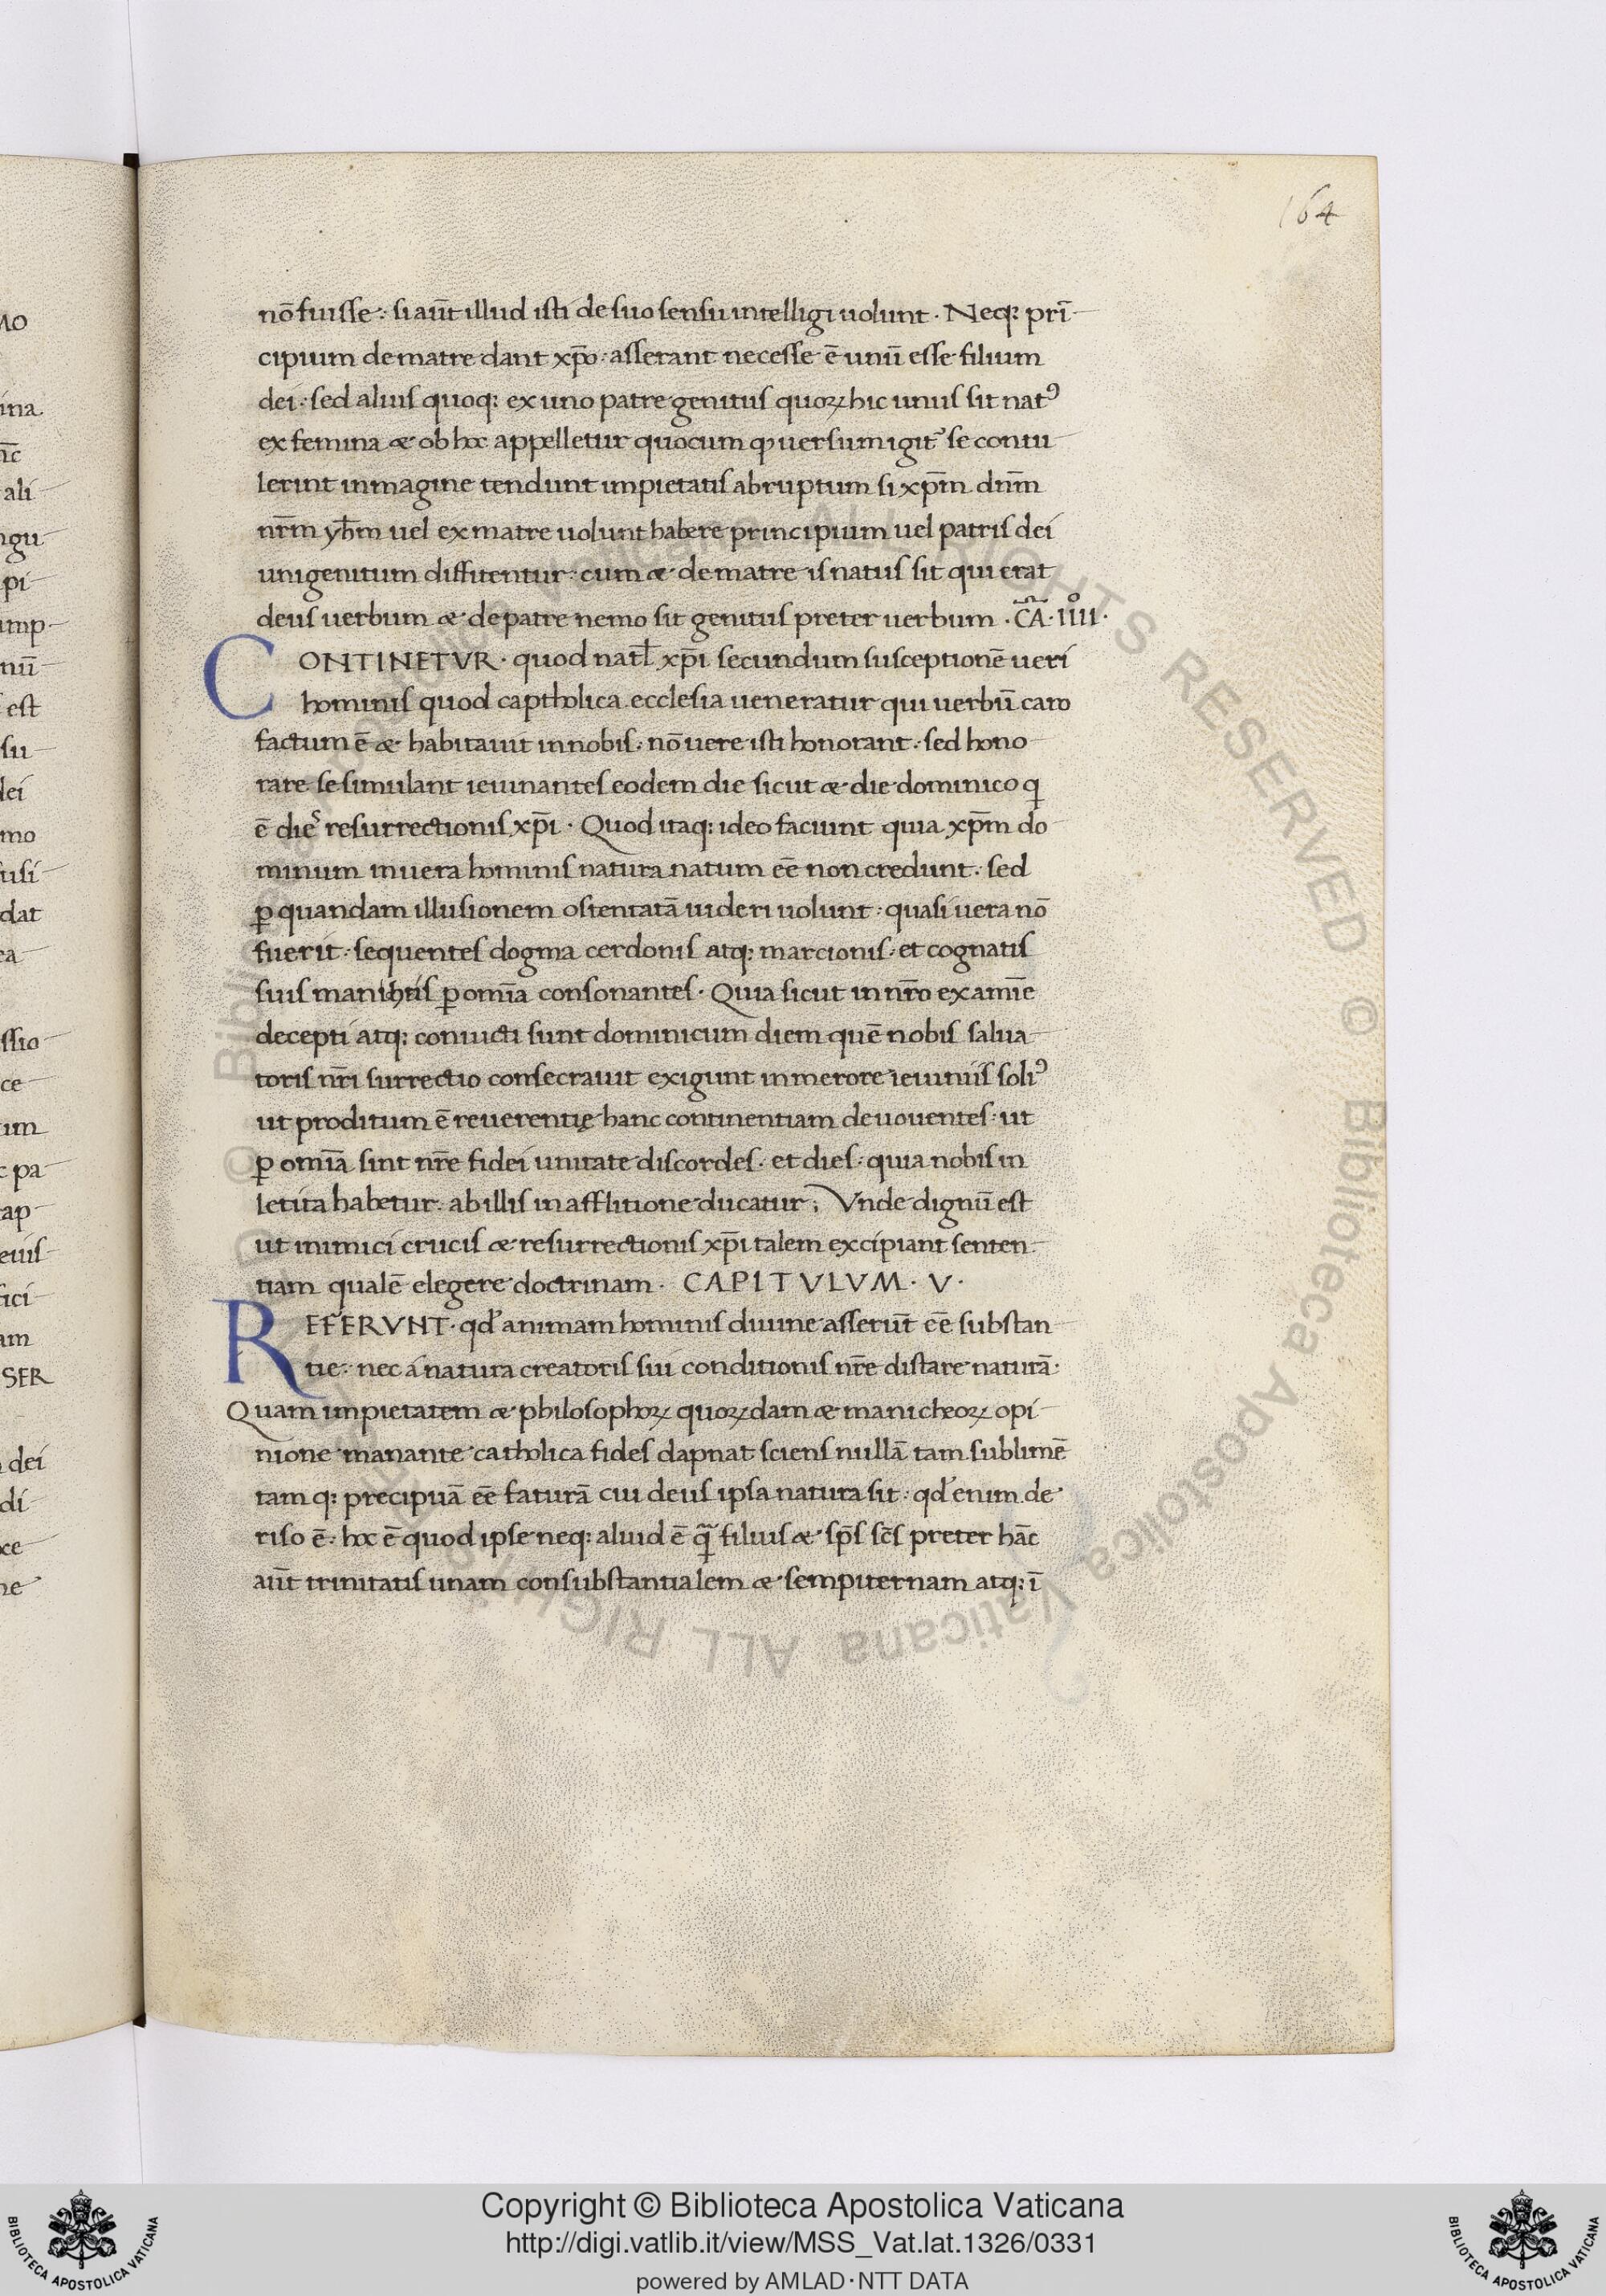 164
nō fuisse : si aūt illud isti de suo sensu intelligi uolunt · Neq: pri̅
cipium de matre dant xp̄o : asserant necesse ē unū esse filium
dei : sed alius quoq: ex uno patre genitus quoꝝ hic unus sit natꝰ
ex femina æ ob hoc appelletur quocum qꝫ uersum igit᷑ se contu
lerint inmagine tendunt impietatis abruptum si xp̄m dn̄m
nr̄m yh̄m uel ex matre uolunt habere principium uel patris dei
unigenitum diffitentur : cum æ de matre is natus sit qui erat
deus uerbum æ de patre nemo sit genitus preter uerbum · C̄A · IIII ·
CONTINETVR · quod natl̄ xp̄i secundum susceptionē ueri
hominis quod captholica ecclesia ueneratur qui uerbū caro
factum ē æ habitauit in nobis : nō uere isti honorant : sed hono
rare se simulant ieiunantes eodem die sicut æ die dominico q
ē dies resurrectionis xp̄i · Quod itaq: ideo faciunt quia xp̄m do
minum in uera hominis natura natum eē non credunt : sed
ꝑ quandam illusionem ostentatā uideri uolunt : quasi uera nō
fuerit : sequentes dogma cerdonis atq: marcionis : et cognatis
suis ꝑ omīa consonantes · Quia sicut in nr̄o examīe
decepti atq: conuicti sunt dominicum diem quē nobis salua
toris nr̄i surrectio consecrauit exigunt in merore ieiuniis soliꝰ
ut proditum ē reuerentię hanc continentiam deuouentes : ut
ꝑ omīa sint nr̄e fidei unitate discordes · et dies : quia nobis in
letita habetur : ab illis in afflitione ducatur ; Vnde dignū est
ut inimici crucis æ resurrectionis xp̄i talem excipiant senten
tiam qualē elegere doctrinam · CAPITVLVM · V ·
REFERVNT · qd̓ animam hominis diuine asserūt eē substan
tie : nec á natura creatoris sui conditionis nr̄e distare naturā ·
Quam impietatem æ philosophoꝝ quoꝝdam æ manicheoꝝ opi
nione manante catholica fides dapnat sciens nullā tam sublimē
tam q: precipuā eē faturā cui deus ipsa natura sit : qd̓ enim de
riso ē : hoc ē quod ipse neq: aliud ē qᷓ filius æ sp̄s sc̄s preter hāc
aūt trinitatis unam consubstantialem æ sempiternam atq: ī
Copyright © Biblioteca Apostolica Vaticana
http://digi.vatlib.it/view/MSS_Vat.lat.1326/0331
powered by AMLAD·NTT DATA